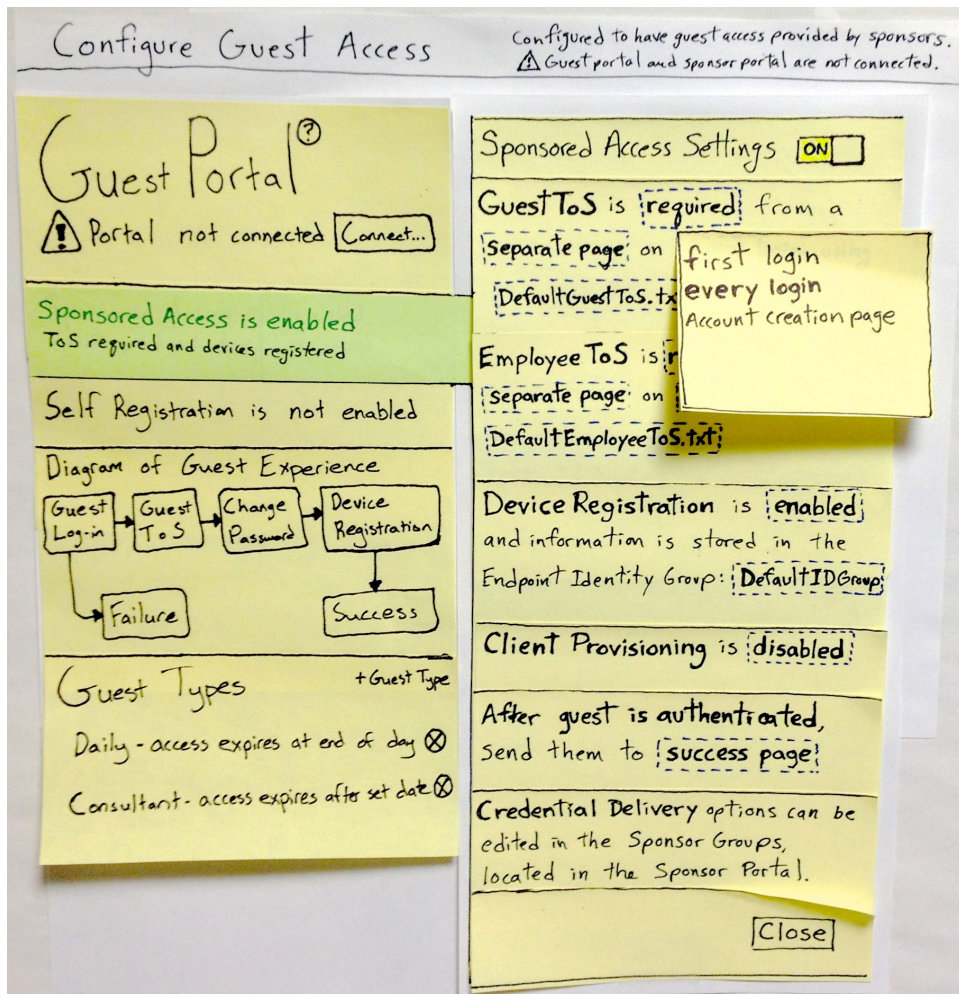 Configure Guest Access
Configured to have guest access provided by sponsors.
⚠ Guest portal and sponsor portal are not connected.
Guest Portal ?
⚠ Portal not connected Connect...
Sponsored Access is enabled
ToS required and devices registered
Self Registration is not enabled
Diagram of Guest Experience
Guest Log-in
Guest ToS
Change Password
Device Registration
Failure
Success
Guest Types
+ Guest Type
Daily - access expires at end of day ⊗
Consultant - access expires after set date ⊗
Sponsored Access Settings ON
Guest ToS is required from a
separate page on
DefaultGuestToS.tx
first login
every login
Account creation page
Employee ToS is
separate page on
DefaultEmployeeToS.txt
Device Registration is enabled
and information is stored in the
Endpoint Identity Group: DefaultIDGroup
Client Provisioning is disabled
After guest is authenticated,
send them to success page
Credential Delivery options can be
edited in the Sponsor Groups,
located in the Sponsor Portal.
Close